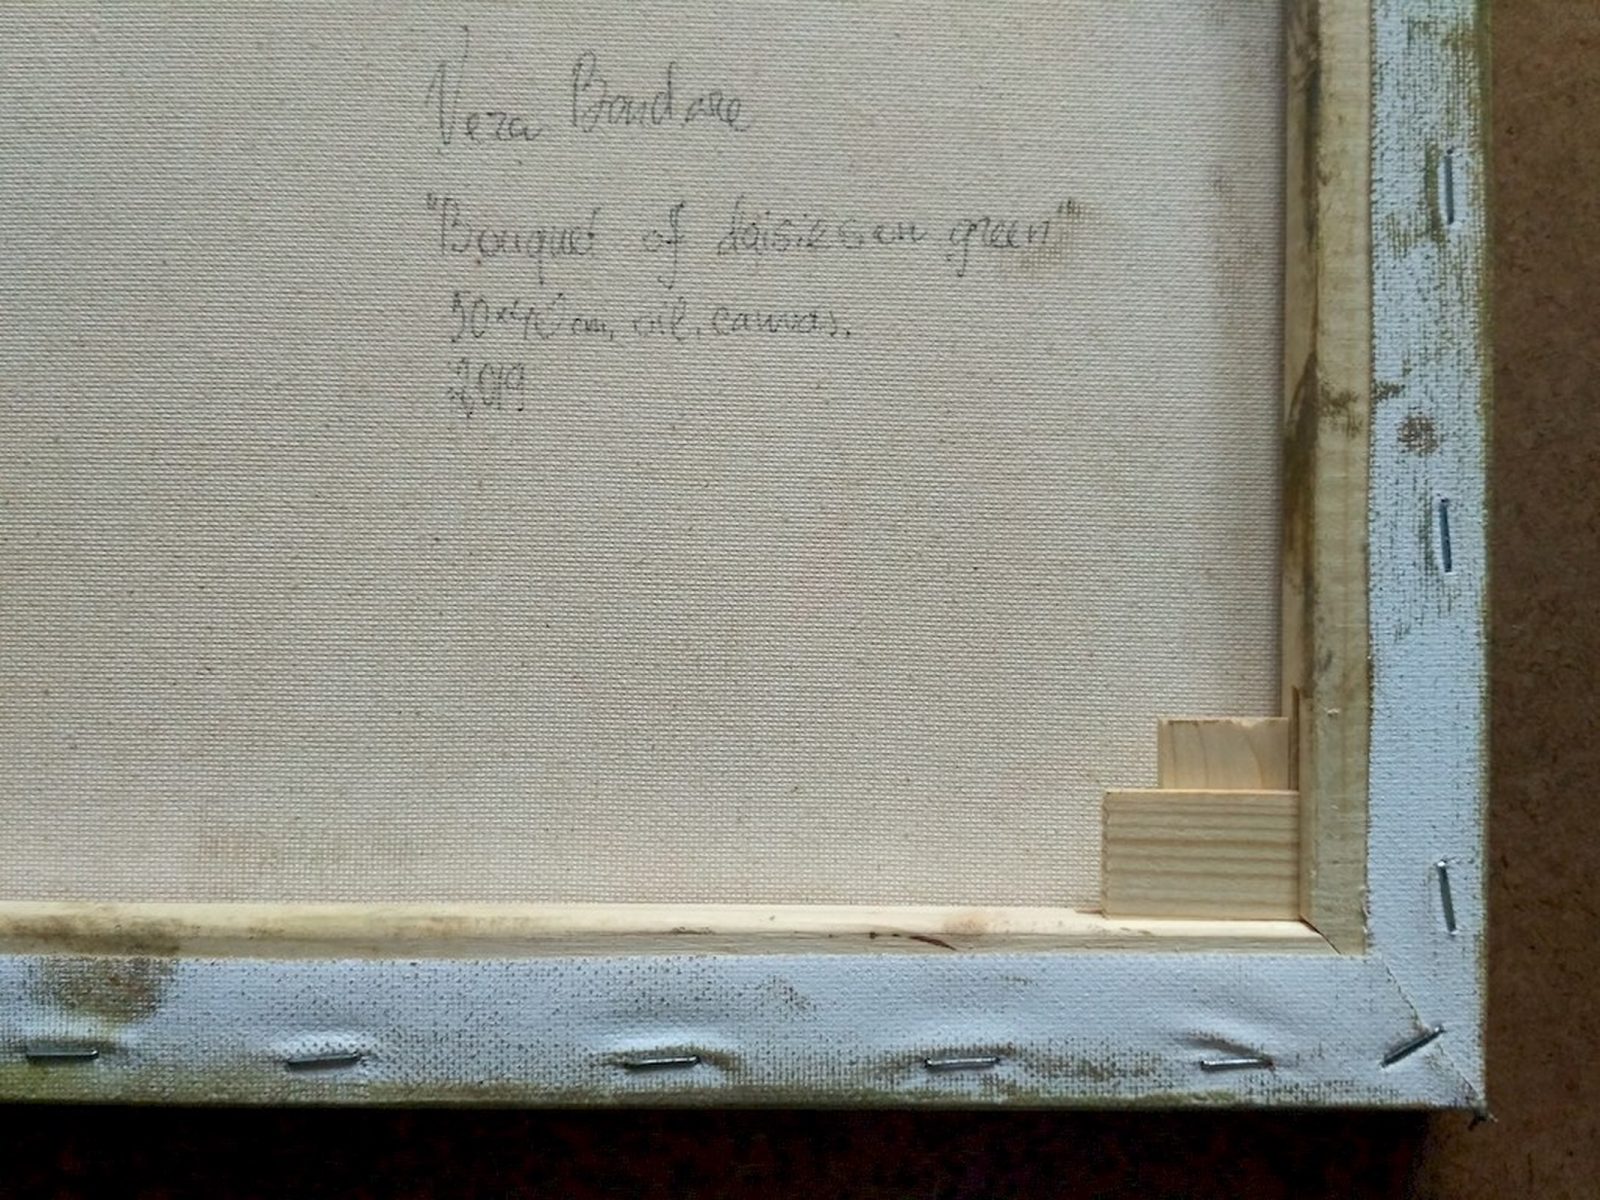 Vera Bondare
"Bouquet of daisies on green"
50×40 cm, oil, canvas.
2019